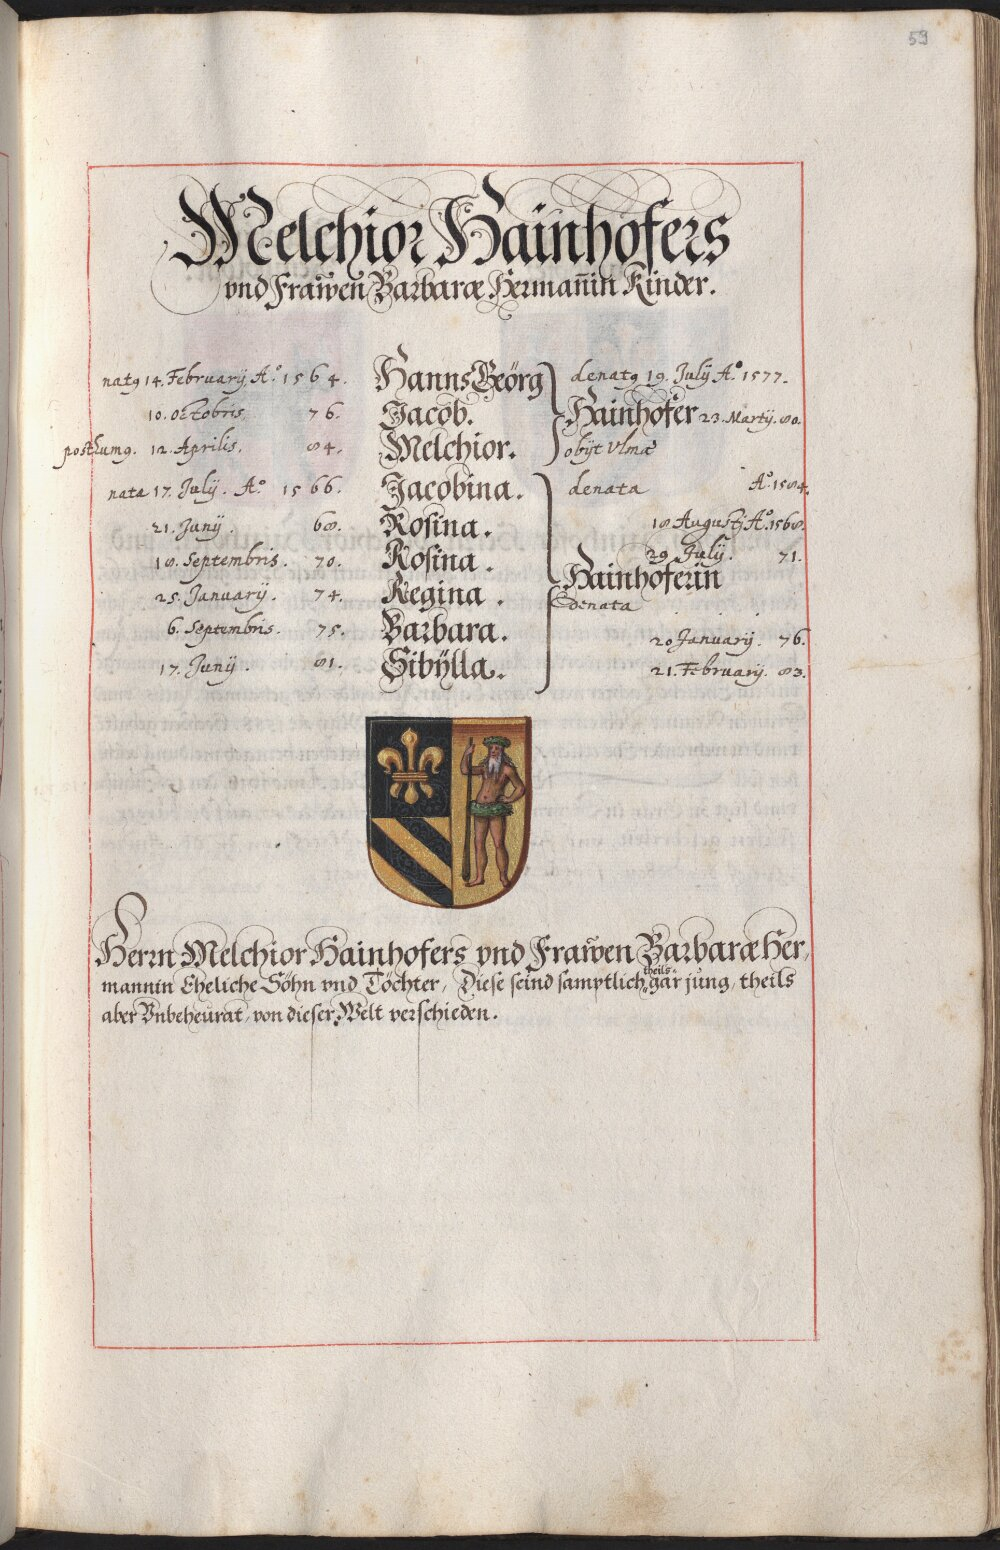 59
Melchior Hainhofers
vnd Frawen Barbaræ Hermañin Kinder.
natꝯ 14. February Aº. 1564. Hanns Geörg denatꝯ 19. July Aº. 1577.
10. Octobris. 76. Jacob. Hainhofer 23. Martij. 80.
posthumꝯ. 12. Aprilis. 84. Melchior. obijt Vlmæ
nata 17. July. Aº. 1566. Jacobina. denata Aº. 1584.
21. Junij. 68. Rosina. 18 Augustj Aº. 1568.
18. Septembris. 70. Rosina. 29 July. 71.
Hainhoferin
25. January. 74. Regina. denata
6. Septembris. 75. Barbara. 20 January. 76.
17. Junij. 81. Sibÿlla. 21. February. 83.
Herrn Melchior Hainhofers vnd Frawen Barbaræ Her,
mannin Eheliche Söhn vnd Töchter, Diese seind samptlich theils gar jung, theils
aber Vnbeheurat, von dieser Welt verschieden.